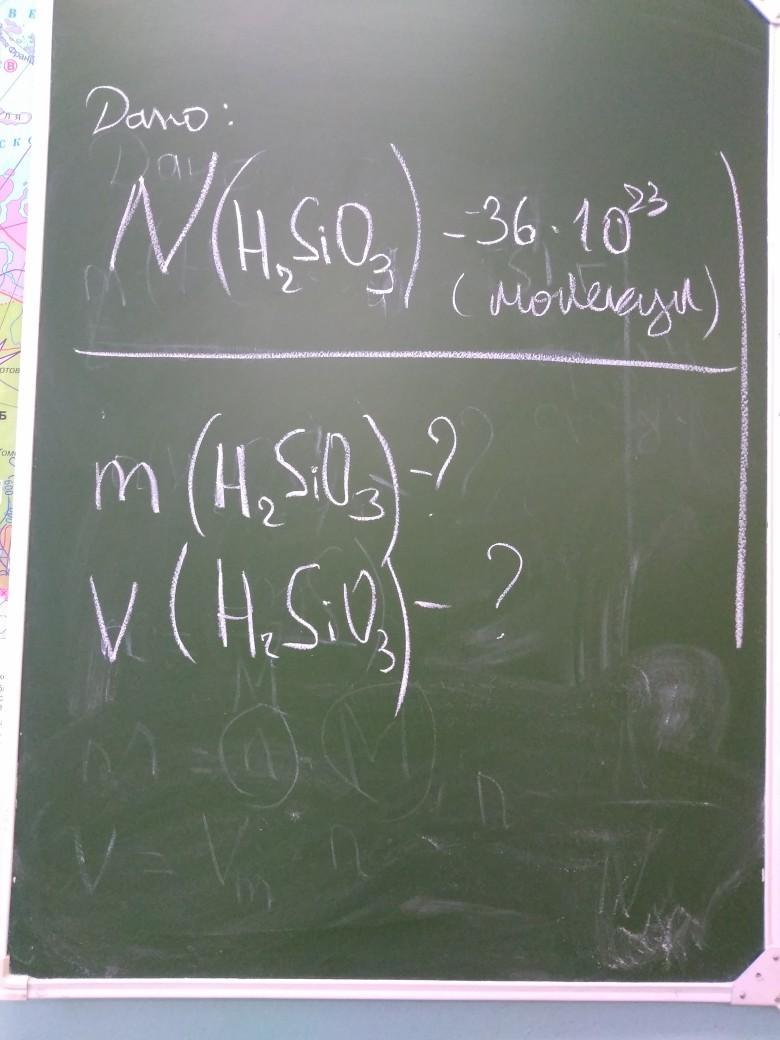 Дано:
N(H₂SiO₃) - 36 · 10²³
(молекул)
m(H₂SiO₃) - ?
V(H₂SiO₃) - ?
m = n · M
V = Vₘ n